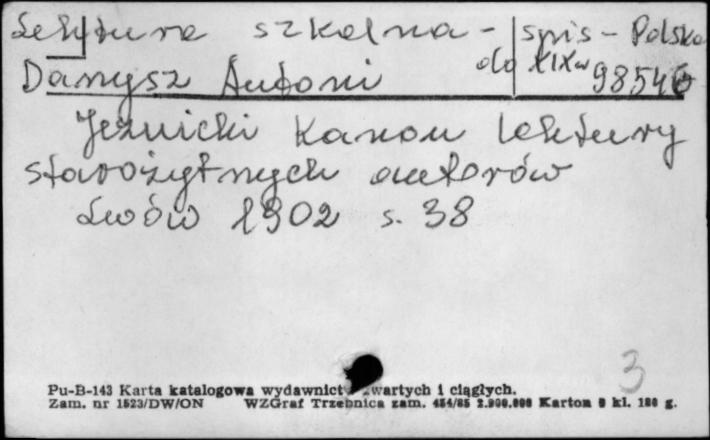 Lektura szkolna - spis - Polska
do XIX w
Danysz Antoni 98546
Jezuicki kanon lektury
starożytnych autorów
Lwów 1902 s. 38
3
Pu-B-143 Karta katalogowa wydawnictw zwartych i ciągłych.
Zam. nr 1523/DW/ON WZGraf Trzebnica zam. 454/85 2.900.000 Karton 0 kl. 180 g.